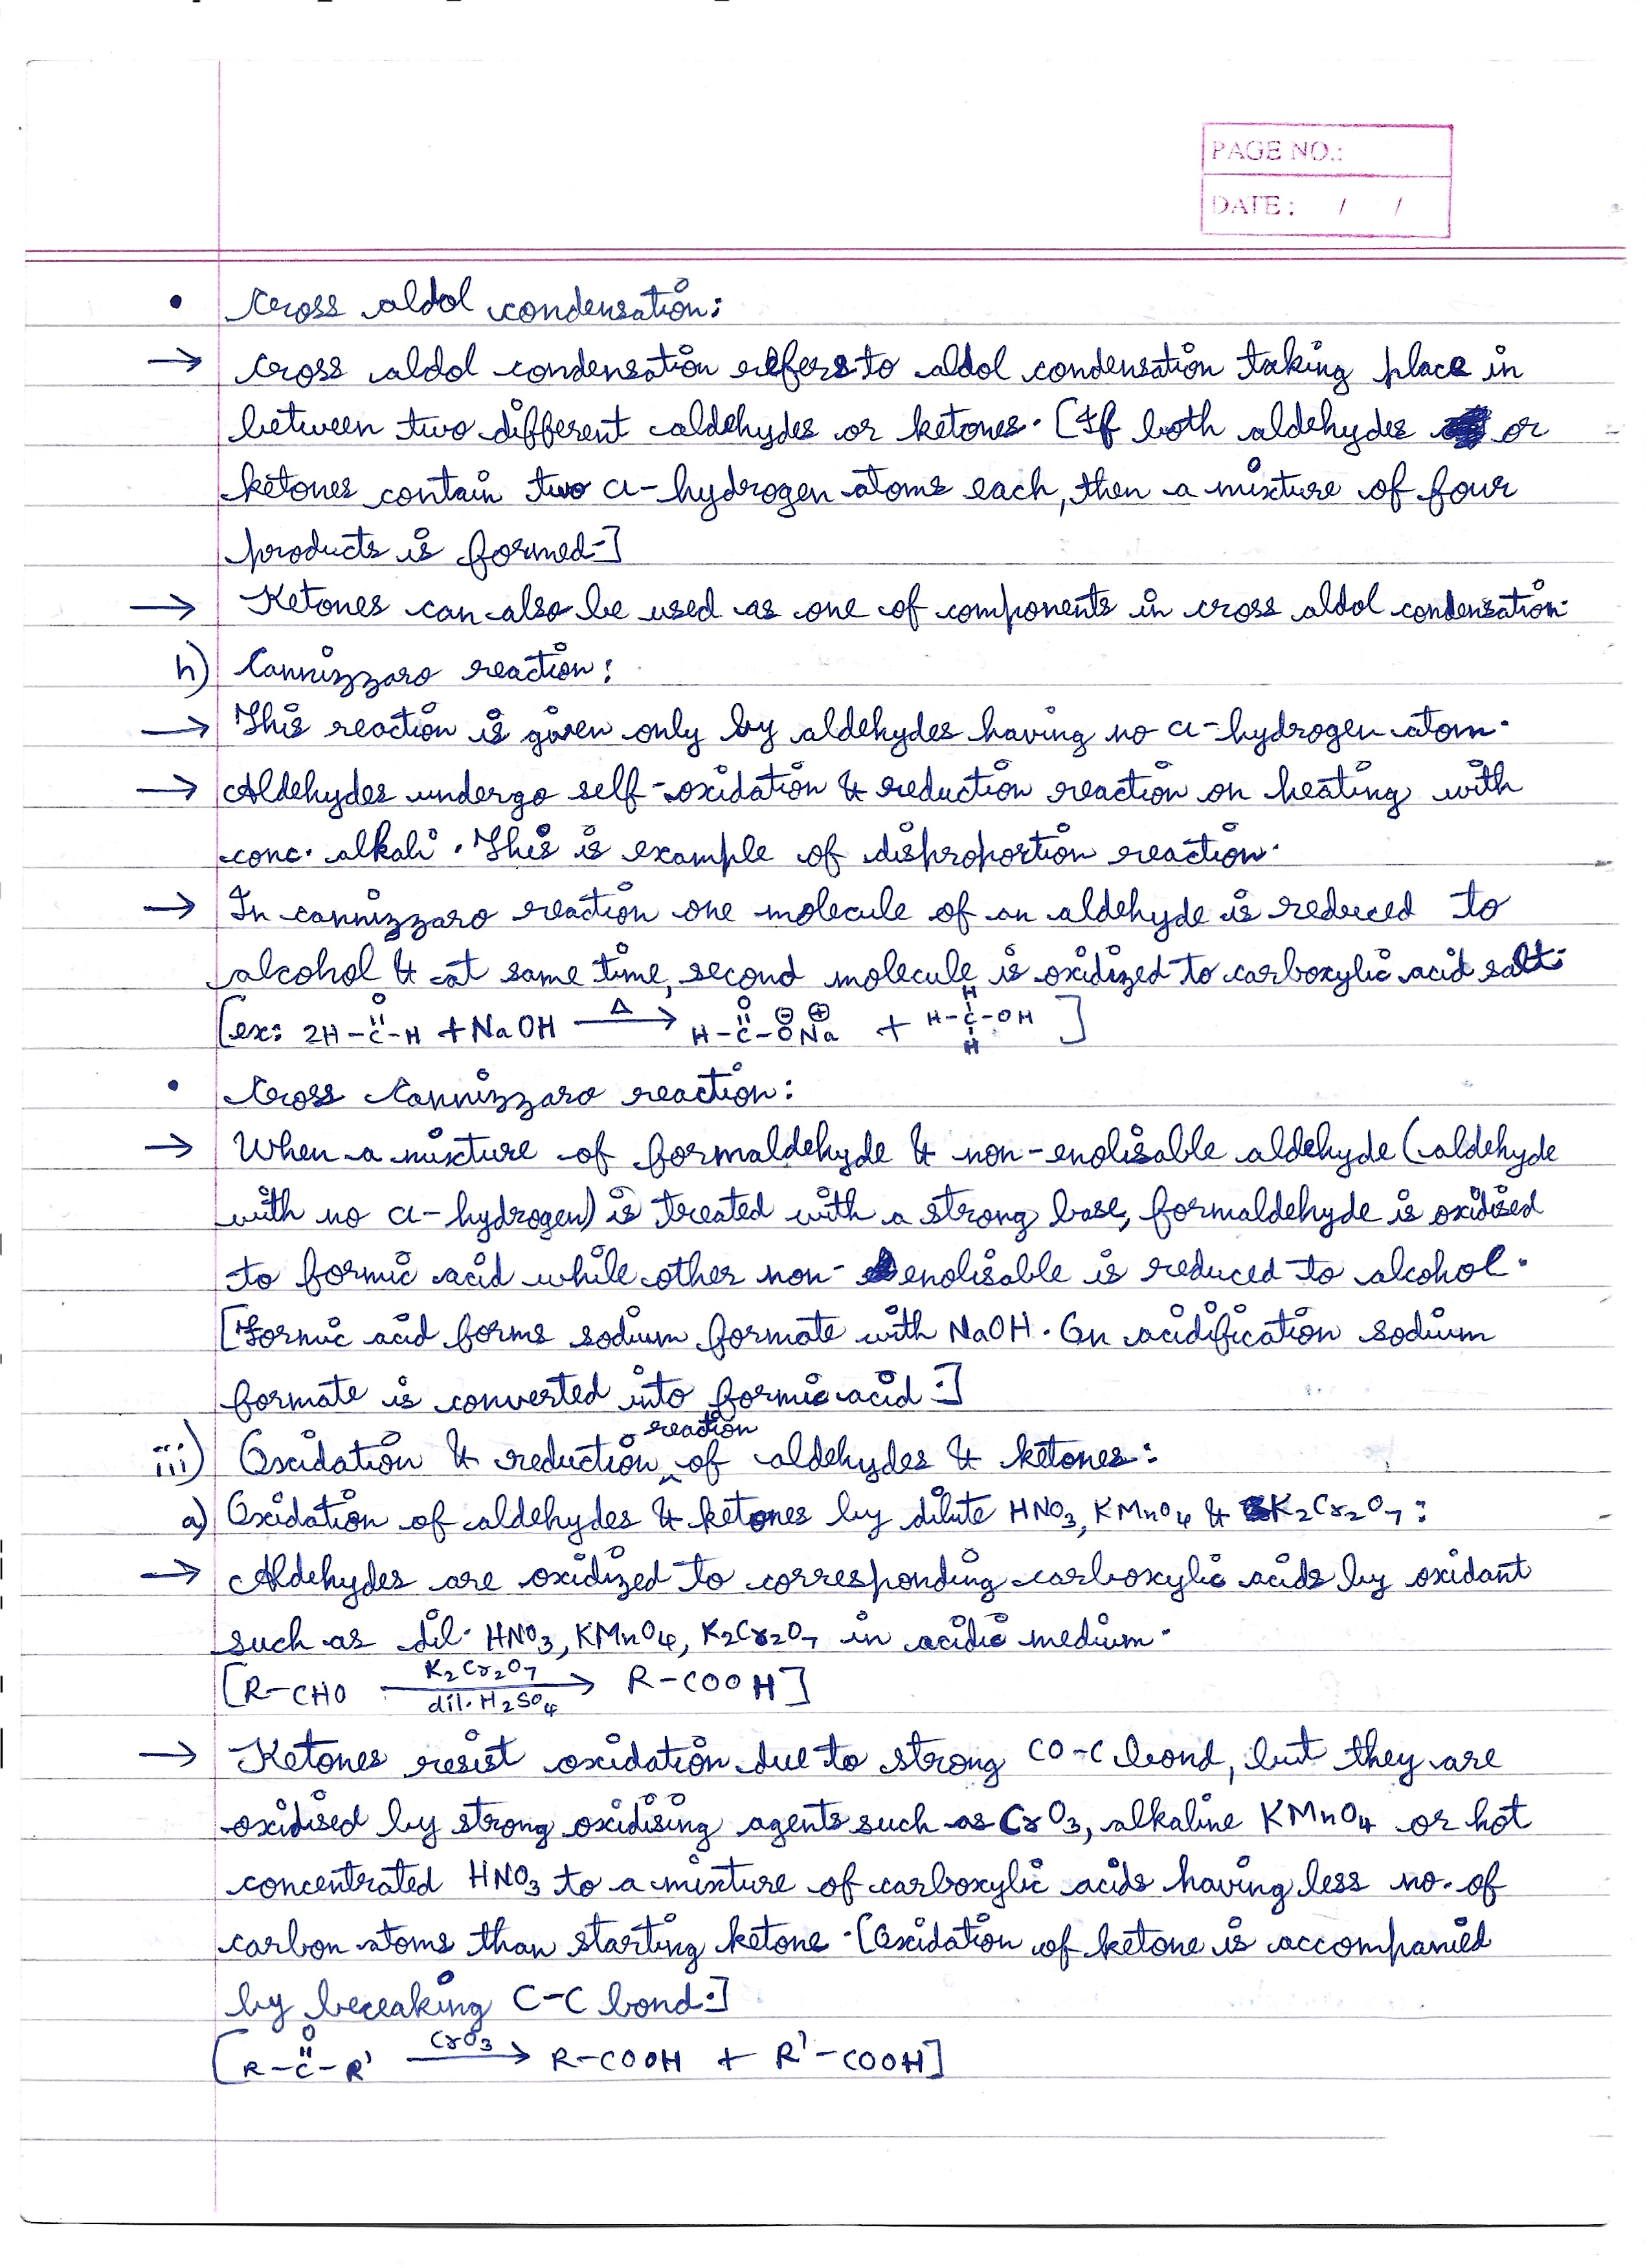 PAGE NO.:
DATE: / /
• Cross aldol condensation:
→ Cross aldol condensation refers to aldol condensation taking place in
between two different aldehydes or ketones. [If both aldehydes or
ketones contain two α-hydrogen atoms each, then a mixture of four
products is formed.]
→ Ketones can also be used as one of components in cross aldol condensation.
h) Cannizzaro reaction:
→ This reaction is given only by aldehydes having no α-hydrogen atom.
→ Aldehydes undergo self-oxidation & reduction reaction on heating with
conc. alkali. This is example of disproportion reaction.
→ In cannizzaro reaction one molecule of an aldehyde is reduced to
alcohol & at same time, second molecule is oxidized to carboxylic acid salt.
[ex: 2H-C(=O)-H + NaOH —Δ→ H-C(=O)-O⊖Na⊕ + H-C(H)(H)-OH]
• Cross Cannizzaro reaction:
→ When a mixture of formaldehyde & non-enolisable aldehyde (aldehyde
with no α-hydrogen) is treated with a strong base, formaldehyde is oxidised
to formic acid while other non-enolisable is reduced to alcohol.
[Formic acid forms sodium formate with NaOH. On acidification sodium
formate is converted into formic acid.]
iii) Oxidation & reduction reaction of aldehydes & ketones:
a) Oxidation of aldehydes & ketones by dilute HNO3, KMnO4 & K2Cr2O7:
→ Aldehydes are oxidized to corresponding carboxylic acids by oxidant
such as dil. HNO3, KMnO4, K2Cr2O7 in acidic medium.
[R-CHO —K2Cr2O7/dil. H2SO4→ R-COOH]
→ Ketones resist oxidation due to strong CO-C bond, but they are
oxidised by strong oxidising agents such as CrO3, alkaline KMnO4 or hot
concentrated HNO3 to a mixture of carboxylic acids having less no. of
carbon atoms than starting ketone. [Oxidation of ketone is accompanied
by breaking C-C bond.]
[R-C(=O)-R' —CrO3→ R-COOH + R'-COOH]